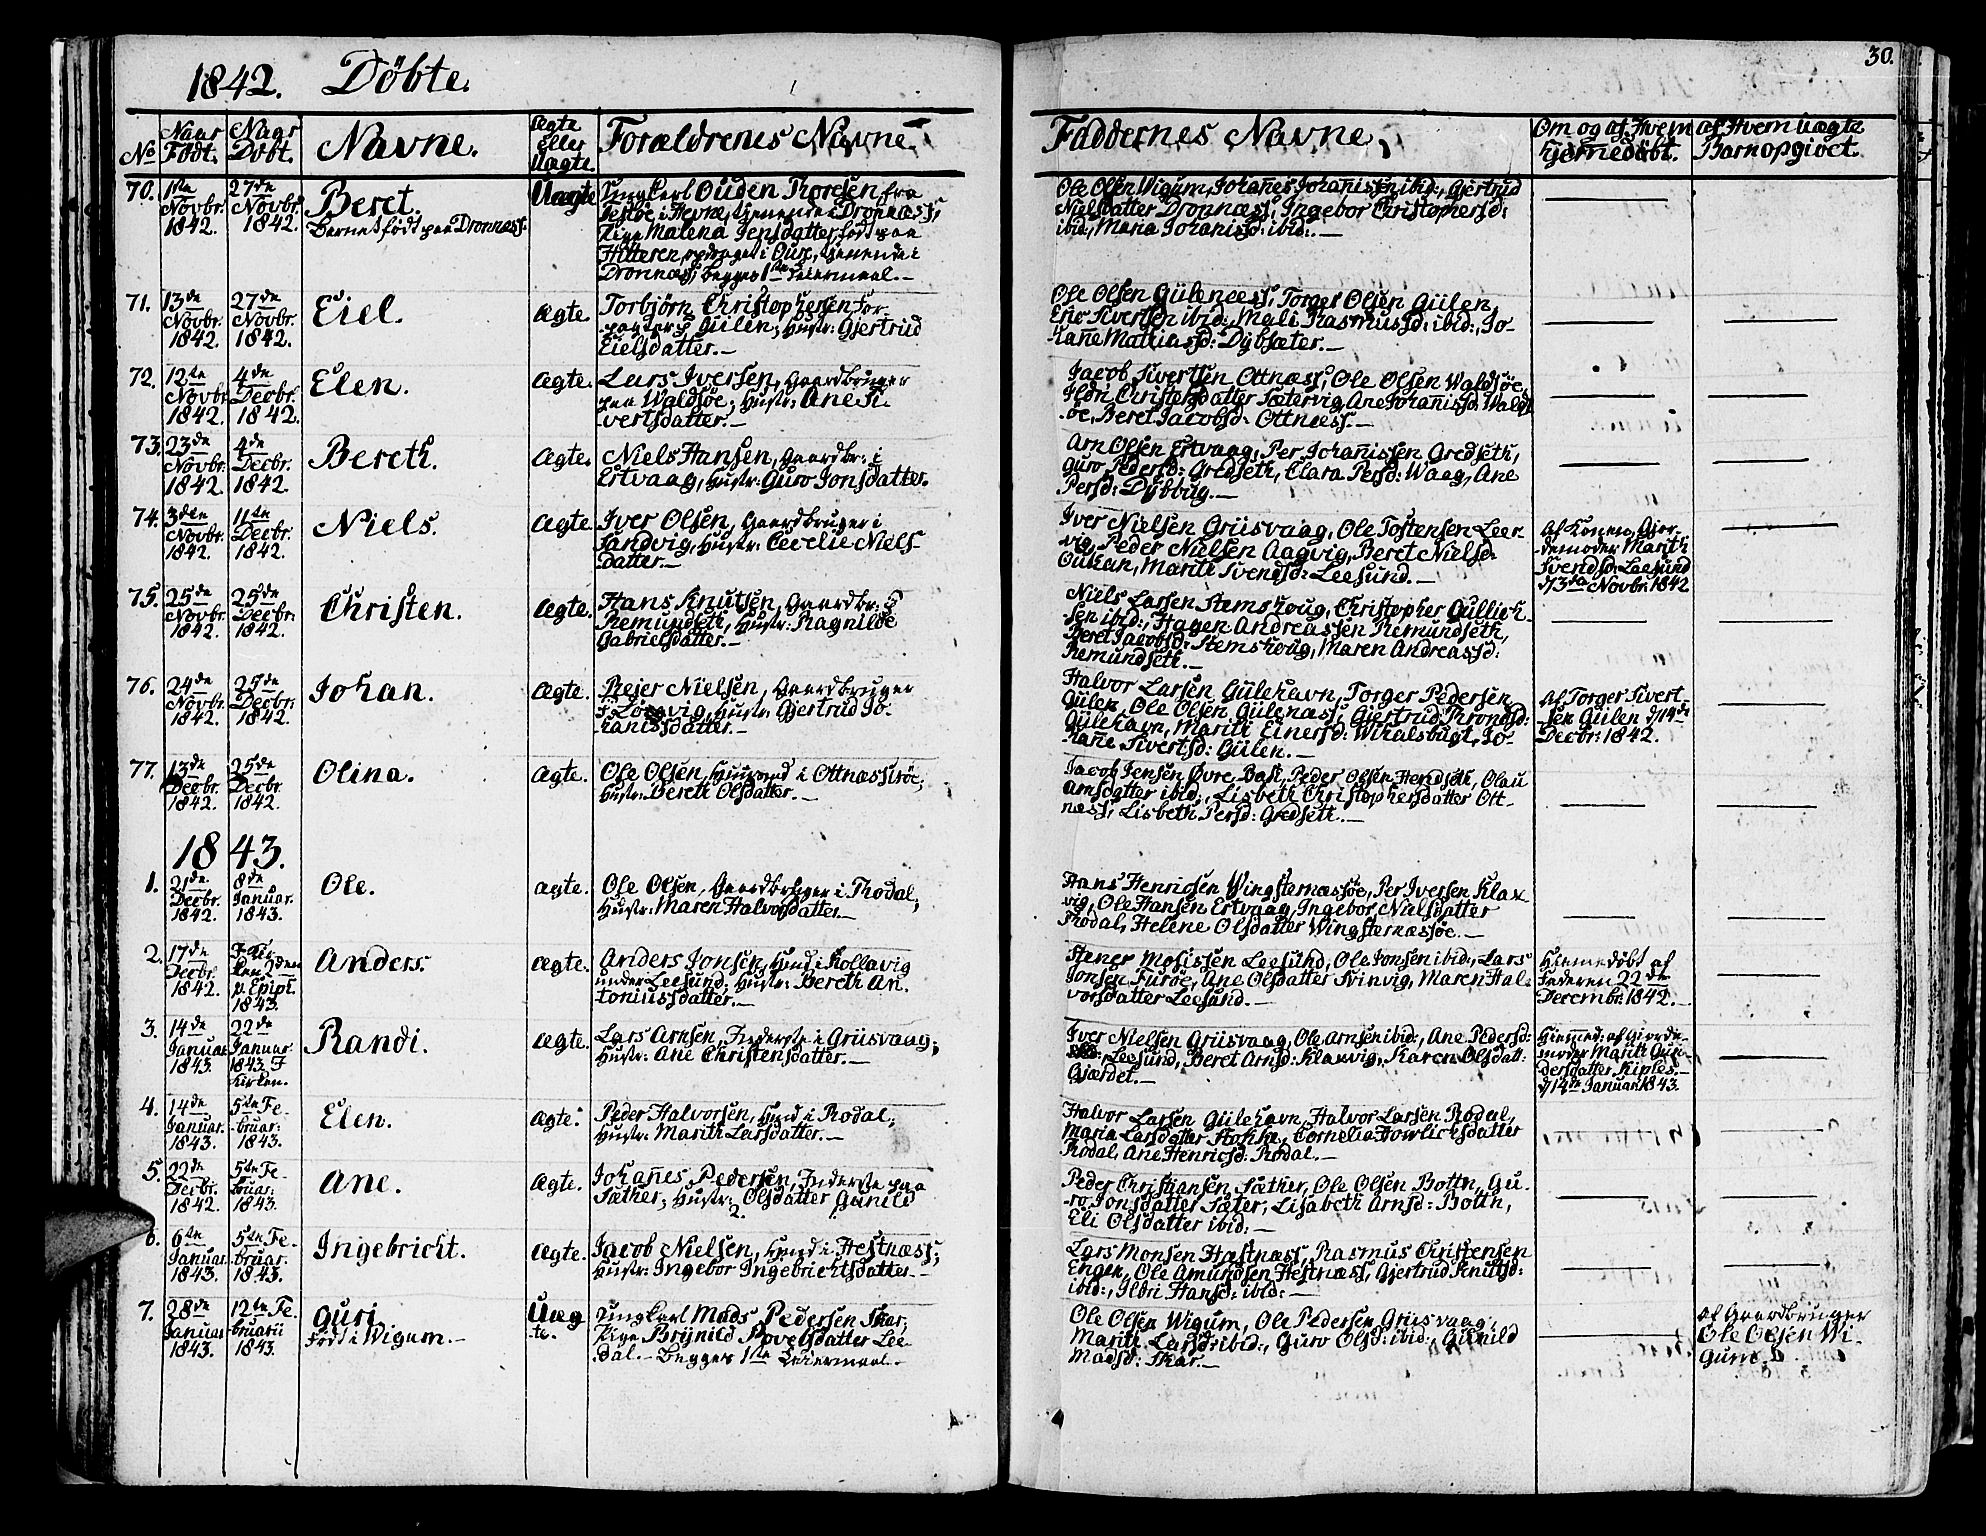 1842. Döbte.
30.
No
Naar Födt.
Naar Döbt.
Navne.
Ægte eller Uægte
Forældrenes Navne.
Faddernes Navne,
Om og af Hvem hjemedöbt.
af Hvem uægte Barn opgivet.
70.
1ste Novbr. 1842.
27de Novbr. 1842.
Beret.
Barnet födt paa Dronnæss.
Uægte
Ungkarl Ouden Thoresen fra
i Hevne, tjenende i Dronnæss,
Pige Malena Jensdatter födt paa
Hitteren, opdraget i Oure, tjenende i
Dronnæs; begges 1ste Leiermaal.
Ole Olsen Wigum, Johañes Johanissen ibid:, Gjertrud
Nielsdatter Dronnæss, Ingebor Christophersd:
ibid:, Maria Johanisd: ibid:.
71.
13de Novbr. 1842.
27de Novbr. 1842.
Eiel.
Ægte.
Torbjörn Christophersen For-
pagter i Gülen; Hustr: Gjertrud
Eielsdatter.
Ole Olsen Gülenæss, Torger Olsen Gülen,
Eric Sivertsen ibid:, Mali Rasmussd: ibid:, Jo-
hañe Mathiasd: Dybsæter.
72.
12te Novbr. 1842.
4de Decbr. 1842.
Elen.
Ægte.
Lars Iversen, Gaardbruger
paa Waldsöe; Hustr: Ane Si-
vertsdatter.
Jacob Sivertsen Ottnæss, Ole Olsen Waldsöe,
Ildri Christensdatter Sætervig, Ane Johanisd: Walds-
öe, Beret Jacobsd: Ottnæss.
73.
23de Novbr. 1842
4de Decbr. 1842.
Bereth.
Ægte.
Niels Hansen, Gaardbr: i
Ertvaag, Hustr: Guro Jonsdatter.
Arn Olsen Ertvaag, Per Johanissen Gredseth,
Guro Pedersd: Gredseth, Clara Persd: Waag, Ane
Persd: Dybbug.
74.
3den Novbr. 1842.
11te Decbr. 1842.
Niels.
Ægte.
Iver Olsen, Gaardbruger i
Sandvig, Hustr: Cecelie Niels-
datter.
Iver Nielsen Griisvaag, Ole Tostensen Leer-
vig, Peder Nielsen Aagvig, Beret Nielsd:
Ouhan, Marith Svendsd: Leesund.
Af Konen, Gjor-
demoder Marith
Svendsd: Leesund
d/3de Novbr. 1842
75.
25de Novbr. 1842.
25de Decbr. 1842.
Christen.
Ægte.
Hans Knutsen, Gaardbr: i
Remundseth, Hustr: Ragnilde
Gabrielsdatter.
Niels Larsen Stemshoug, Christopher Gullich-
sen ibid:, Hagen Andreassen Remundseth,
Beret Jacobsd: Stemshoug, Maren Andreasd:
Remundseth.
76.
24de Novbr. 1842.
25de Decbr. 1842.
Johan.
Ægte.
Rejer Nielsen, Gaardbruger
i Lörvig, Hustr: Gjertrud Jo-
hanisdatter.
Halvor Larsen Gülehavn, Torger Pedersen
Gülen, Ole Olsen Gülenæss, Gjertrud Thronsd:
Gülehavn, Marith Einersd: Wihalsbugt, Jo-
hañe Sivertsd: Gülen.
Af Torger Sivert-
sen Gülen d/14de
Decbr: 1842.
77.
13de Decbr. 1842.
25de Decbr. 1842.
Olina.
Ægte.
Ole Olsen, Huusmand i Ottnæssöe,
Hustr: Bereth Olsdatter.
Jacob Jensen Øvre Bas, Peder Olsen Hendseth, Olau
Arnsdatter ibid:, Lisbeth Christophersdatter Ott-
næss, Lisbeth Persd: Gredseth.
1843.
1.
21de Decbr. 1842.
8de Januar. 1843.
Ole.
ægte.
Ole Olsen, Gaardbruger i Rodal,
Hustr: Maren Halvorsdatter.
Hans Henricsen Wingsternæssöe, Per Iversen Klax-
vig, Ole Hansen Ertvaag, Ingebor Nielsdatter
Rodal, Helene Olsdatter Wingsternæssöe.
2.
17de Decbr. 1842.
I Kir-
ken 2den
p. Epiph.
1843.
Anders.
ægte.
Anders Jonsen, Hmd i Kollavig
under Leesund; Hustr: Bereth An-
toniusdatter.
Stener Mosissen Leesund, Ole Jonsen ibid:, Lars
Jonsen Furöe, Ane Olsdatter Svinvig, Maren Hal-
vorsdatter Leesund.
Hiemedöbt af
Faderen 22de
Decembr: 1842.
3.
14de Januar 1843.
22de Januar. 1843 I Kirken.
Randi.
Ægte.
Lars Arnsen, Inderste i Griisvaag,
Hustr: Ane Christensdatter.
Iver Nielsen Griisvaag, Ole Arnsen ibid:, Ane Pedersd:
Leesund, Beret Arnsd: Klaxvig, Karen Olsdatt:
Gjærdet.
Hiemed: af Giorde-
moder Marith Gun-
dersdatter Kiples.
d/14de Januar 1843.
4.
14de Januar. 1843.
5te Fe-
bruar: 1843.
Elen.
ægte.
Peder Halvorsen, Hmd i Rodal,
Hustr: Marith Larsdatter.
Halvor Larsen Gülehavn, Halvor Larsen Rodal,
Maria Larsdatter, Cornelia
Rodal, Ane Henricsd: Rodal.
5.
22de Decbr. 1842.
5te Fe-
bruar: 1843.
Ane.
Ægte.
Johañes Pedersen, Inderste paa
Sæther; Hustr: Olsdatter Gunild
2. 1.
Peder Christiansen Sæther, Ole Olsen Bottn, Gu-
ro Jonsdatter Sæter, Lisabeth Arnsd: Bottn,
Eli Olsdatter ibid:.
6.
6te Januar. 1843.
5te Fe-
bruar. 1843.
Ingebricht.
ægte.
Jacob Nielsen, Hmd i Hestnæss;
Hustr: Ingebor Ingebrichtsdatter.
Lars Monsen Hæstnæss, Rasmus Christensen
Engen, Ole Amundsen Hestnæss, Gjertrud Knutsd:
ibid:, Ildri Hansd: ibid:
7.
28de Januar 1843.
12te Fe-
bruarii 1843.
Guri.
Födt i Wigum.
Uæg-
te.
Ungkarl Mads Pedersen Skar;
Pige Brynild Povelsdatter Lee-
dal. Begges 1ste Leiermaal.
Ole Olsen Wigum, Ole Pedersen Griisvaag,
Marith Larsd: ibid:, Guro Olsd: ibid:, Gunild
Madsd: Skar.
af Gaardbruger
Ole Olsen Wi-
gum.